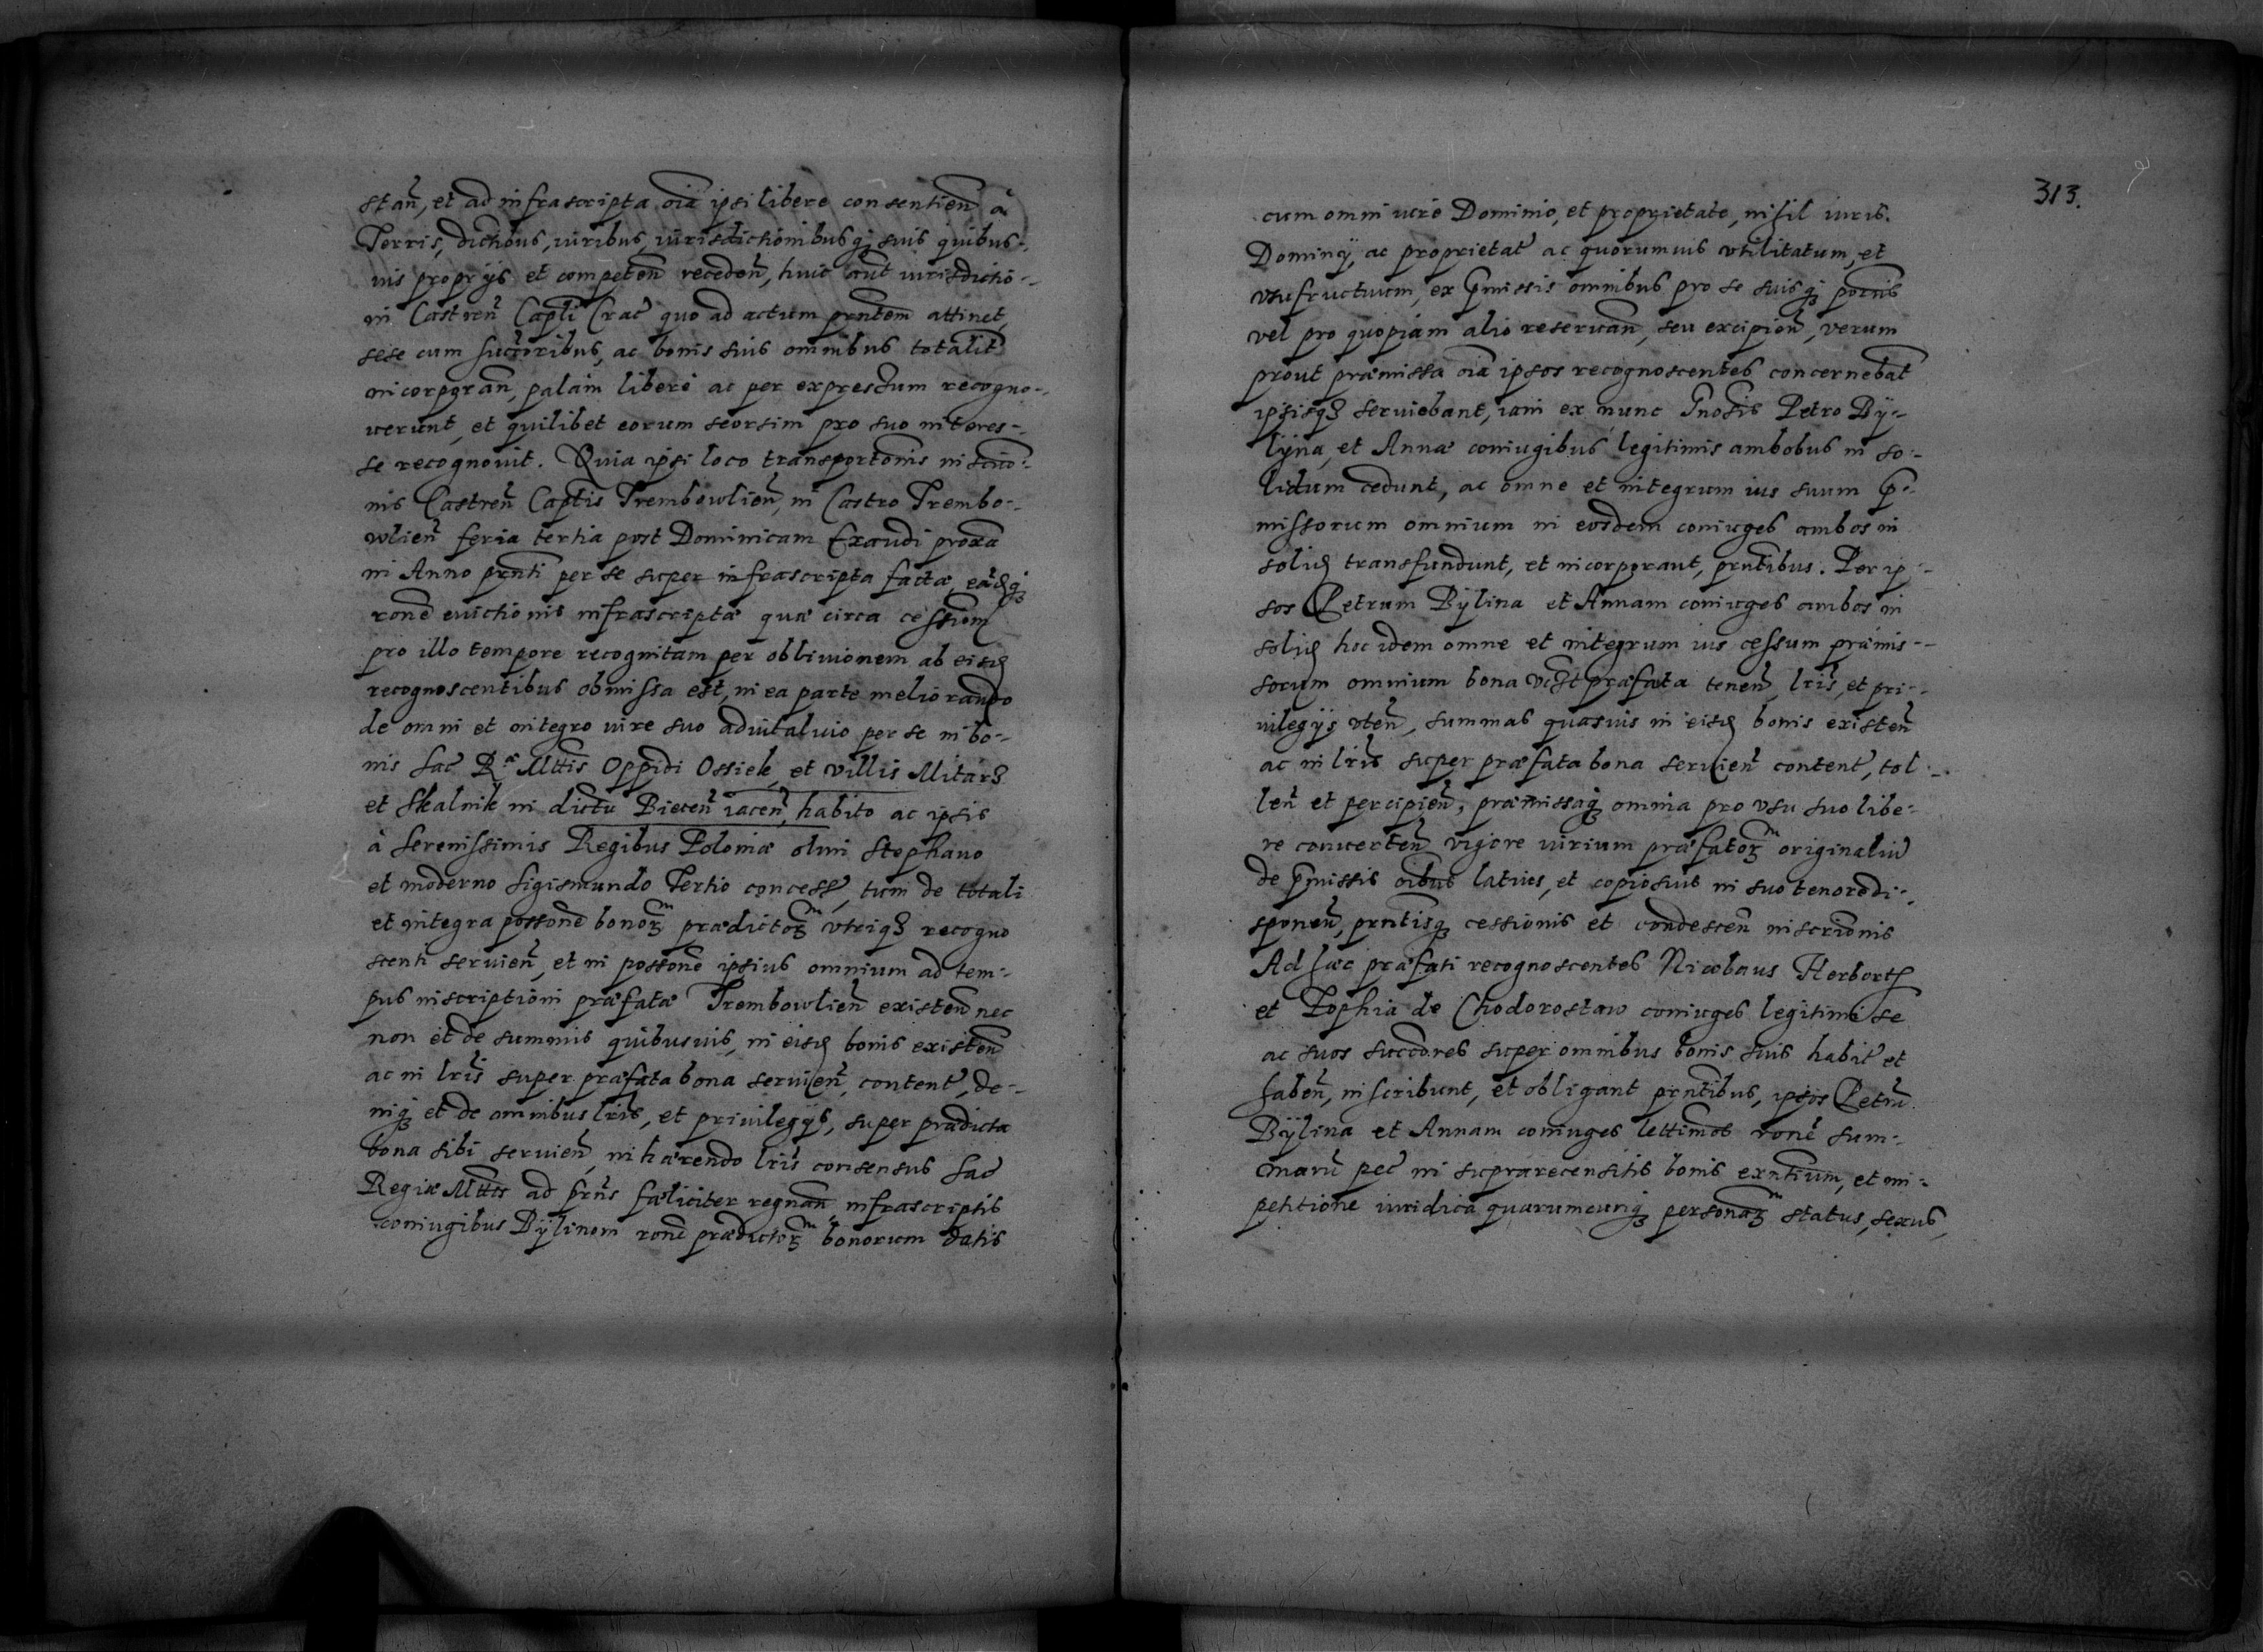 stañ, et ad infrascripta oĩa ipsi libere consentieñ à
Terris, dictiõbus, iuribus, iurisdictionibusq̃ suis quibus-
uis proprijs et competeñ recedeñ, huic aũt iurisdictio-
ni Castreñ Capĩli Crac̃ quo ad actum prñtem attinet,
sese cum succ̃oribus, ac bonis suis omnibus totalit̃
incorporañ, palam libere ac per expressum recogno-
uerunt, et quilibet eorum seorsim pro suo interes-
se recognouit. Quia ipsi loco transportõnis inscrip̃tio-
nis Castreñ Captĩs Trembowlieñ, in Castro Trembo-
wlieñ feria tertia post Dominicam Exaudi proxã
in Anno prñti per se super infrascripta factæ, eãdq̃
rõne euictionis infrascriptæ quæ circa cessionem
pro illo tempore recognitam per obliuionem ab eisd
recognoscentibus obmissa est, in ea parte meliorando
de omni et integro iure suo aduitaluio per se in bo-
nis Sac̃ Rᵉ Mttis Oppidi Ossiek, et villis Mitarz
et Skalnik in dictu Bieceñ iaceñ, habito ac ipsis
à Serenissimis Regibus Poloniæ olim Stephano
et moderno Sigismundo Tertio concess̃, tum de totali
et integra possõne bonoꝝ prædictoꝝ vtriqȝ recogno
scenti seruieñ, et in possõne ipsius omnium ad tem-
pus inscriptioni præfatæ Trembowlieñ existeñ nec
non et de summis quibusuis, in eisd bonis existeñ
ac in lris̃ super præfata bona seruieñ, content̃, de-
niq̃ et de omnibus lris̃, et priuilegijs, super prædicta
bona sibi seruieñ, inhærendo lris̃ consensus Sac̃
Regiæ Mttis ad prñs fæliciter regnañ infrascriptis
coniugibus Bÿlinom rõne prædictoꝝ bonorum datis
313.
cum omni iure Dominio, et proprietate, nihil iuris.
Dominij, ac proprietat̃ ac quorumuis vtilitatum, et
vsufructuum, ex p̃missis omnibus pro se suisq̃ postris̃
vel pro quopiam alio reseruañ, seu excipieñ, verum
prout præmissa oĩa ipsos recognoscentes concernebat̃
ipsisqȝ seruiebant, iam ex nunc G̃nosis Petro Bÿ-
lÿna, et Annæ coniugibus legitimis ambobus in so-
lidum cedunt, ac omne et integrum ius suum p̃-
missorum omnium in eosdem coniuges ambos in
solid transfundunt, et incorporant, prñtibus. Per ip-
sos Petrum Bÿlina et Annam coniuges ambos in
solid hoc idem omne et integrum ius cessum præmis-
sorum omnium bona vc̃zt præfata teneñ, lris̃, et pri-
uilegijs vteñ, summas quasuis in eisd bonis existeñ
ac in lris̃ super præfata bona seruieñ content̃, tol-
leñ et percipieñ, præmissaq̃ omnia pro vsu suo libe-
re conuerteñ vigore iurium præfatoꝝ originaliũ
de p̃missis oĩbus latius, et copiosius in suo tenore di-
sponeñ, prñtisq̃ cessionis et condesceñ inscriõnis
Ad hæc præfati recognoscentes Nicolaus Herborth
et Sophia de Chodorostaw coniuges legitimi se
ac suos succc̃ores super omnibus bonis suis habit̃ et
habeñ, inscribunt, et obligant prñtibus, ipsos Petrũ
Bÿlina et Annam coniuges lettimos rõne sum-
marũ pec̃ in suprarecensitis bonis exñtium, et im-
petitione iuridica quarumcunq̃ personaꝝ status, sexus,